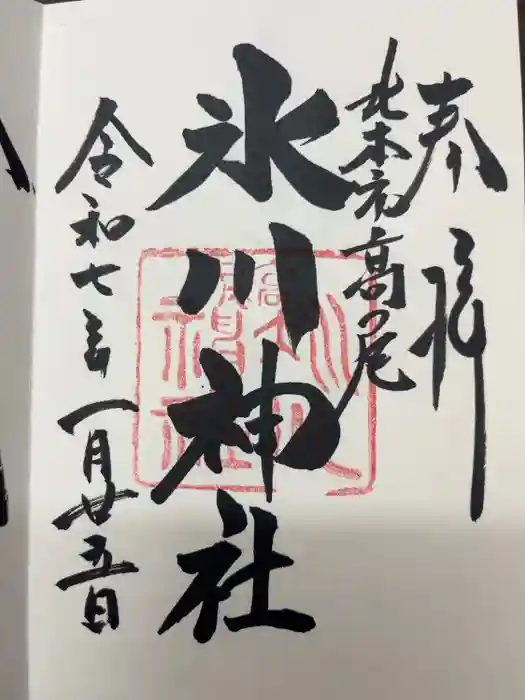 奉拝
北本市高尾
氷川神社
令和七年一月廿五日